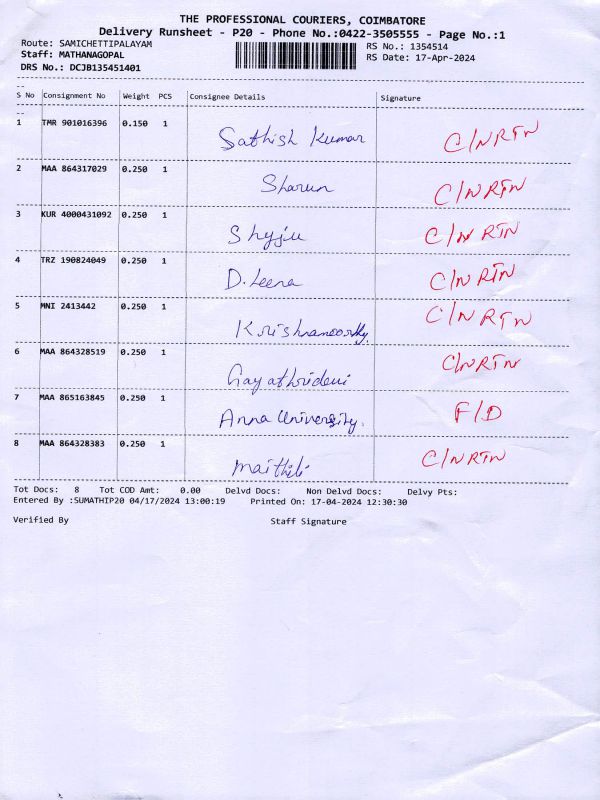 THE PROFESSIONAL COURIERS, COIMBATORE
Delivery Runsheet - P20 - Phone No.:0422-3505555 - Page No.:1
Route: SAMICHETTIPALAYAM RS No.: 1354514
Staff: MATHANAGOPAL RS Date: 17-Apr-2024
DRS No.: DCJB135451401
--
S No Consignment No Weight PCS Consignee Details Signature
--
1 TMR 901016396 0.150 1 Sathish Kumar C/NRTN
2 MAA 864317029 0.250 1 Sharun C/NRTN
3 KUR 4000431092 0.250 1 Shyju C/N RTN
4 TRZ 190824049 0.250 1 D.Leena C/N RTN
5 MNI 2413442 0.250 1 Krishnamoorthy. C/N RTN
6 MAA 864328519 0.250 1 Gayathridevi C/NRTN
7 MAA 865163845 0.250 1 Anna University. F/D
8 MAA 864328383 0.250 1 Maithili C/NRTN
Tot Docs: 8 Tot COD Amt: 0.00 Delvd Docs: Non Delvd Docs: Delvy Pts:
Entered By :SUMATHIP20 04/17/2024 13:00:19 Printed On: 17-04-2024 12:30:30
Verified By Staff Signature